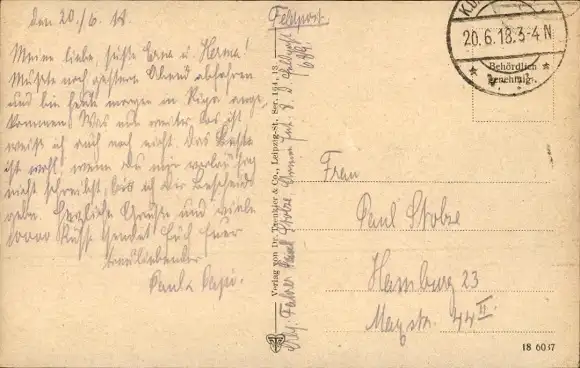 den 20./6. 18.
Meine liebe, süße Erna u. Herma!
Mußte noch gestern Abend abfahren
und bin heute morgen in Riga ange
kommen. Was nun weiter, das ist
weiß ich auch noch nicht. Das Beste
ist wohl, wenn Du mir vorläufig
nicht schreibst, bis ich Dir Bescheid
gebe. Herzliche Grüße und viele
10000 Küsse sendet Euch Euer
treuliebender
Paul u. Papi.
Verlag von Dr. Trenkler & Co., Leipzig-St. Ser. 18
Fahrer Paul Stolze
Feldpost
20.6.18.3-4 N
Behördlich
genehmigt
Frau
Paul Stolze
Hamburg 23
Maxstr. 44 II.
18 6037